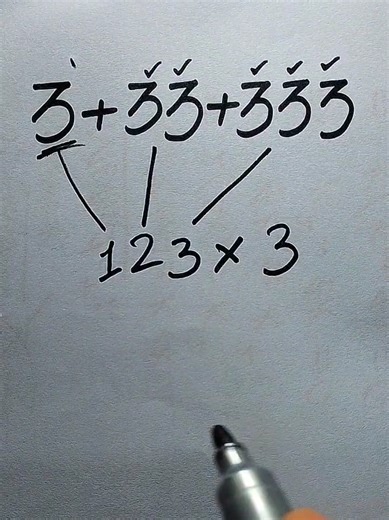 3+33+333
123×3